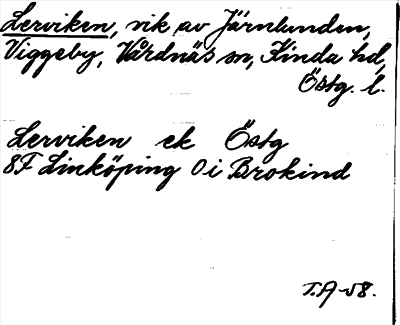 Lerviken, vik av Järnlunden,
Viggeby, Vårdnäs sn, Kinda hd,
Östg. l.
Lerviken ek Östg
8F Linköping 0i Brokind
T.A-58.